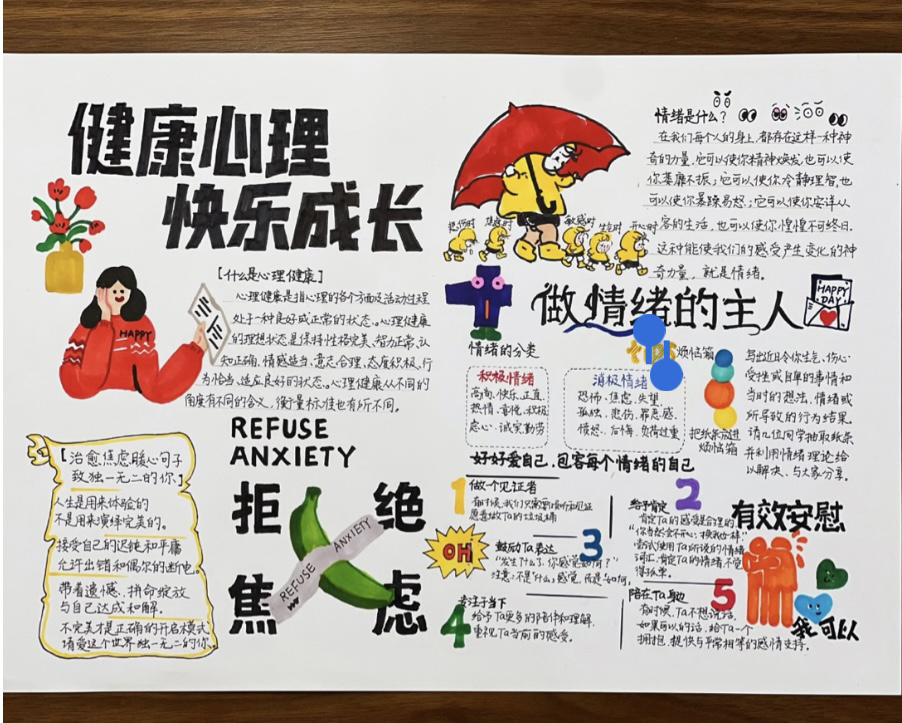 健康心理
快乐成长
【什么是心理健康】
心理健康是指心理的各个方面及活动过程
处于一种良好或正常的状态。心理健康
的理想状态是保持性格完美、智力正常、认
知正确、情感适当、意志合理、态度积极、行
为恰当、适应良好的状态。心理健康从不同的
角度有不同的含义,衡量标准也有所不同。
【治愈焦虑暖心句子
致独一无二的你】
人生是用来体验的
不是用来演绎完美的。
接受自己的迟钝和平庸
允许出错和偶尔的断电
带着遗憾,拼命绽放
与自己达成和解.
不完美才是正确的开启模式
请爱这个世界独一无二的你
HAPPY
REFUSE
ANXIETY
拒绝
焦虑
REFUSE ANXIETY
情绪是什么?
在我们每个人的身上,都存在这样一种神
奇的力量,它可以使你精神焕发,也可以使
你萎靡不振;它可以使你冷静理智,也
可以使你暴躁易怒;它可以使你安详从
容的生活,也可以使你惶惶不可终日.
这种能使我们的感受产生变化的神
奇力量,就是情绪。
悲伤时
焦虑时
敏感时
生气时
开心时
做情绪的主人
HAPPY
DAY
情绪的分类
积极情绪
高尚、快乐、正直
热情、喜悦、积极
虚心、诚实勤劳
消极情绪
恐怖、焦虑、失望
孤独、悲伤、罪恶感
愤怒、后悔、负荷过重
烦恼箱
把纸条放进
烦恼箱
写出近日令你生气、伤心
受挫或自卑的事情和
当时的想法,情绪或
所导致的行为结果
请几位同学抽取纸条
并利用情绪理论给
以解决、与大家分享。
好好爱自己,包容每个情绪的自己
1 做个见证者
有时候,我们只需要倾听和见证
愿意做Ta的垃圾桶
2 给予肯定
肯定Ta的感受是合理的
"你当然会不开心,换我也一样"
尝试使用Ta所说的情绪
词汇,肯定Ta的情绪,不觉
得孤单。
OH
鼓励Ta表达 3
"发生什么了,你感觉如何?"
注意:不是"什么"感觉,而是"如何"
4 专注于当下
给予Ta更多的陪伴和理解
重视Ta当前的感受。
陪在Ta身边 5
有时候,Ta不想说话
如果可以的话,给Ta一个
拥抱,提供与平常相等的感情支持。
有效安慰
我可以